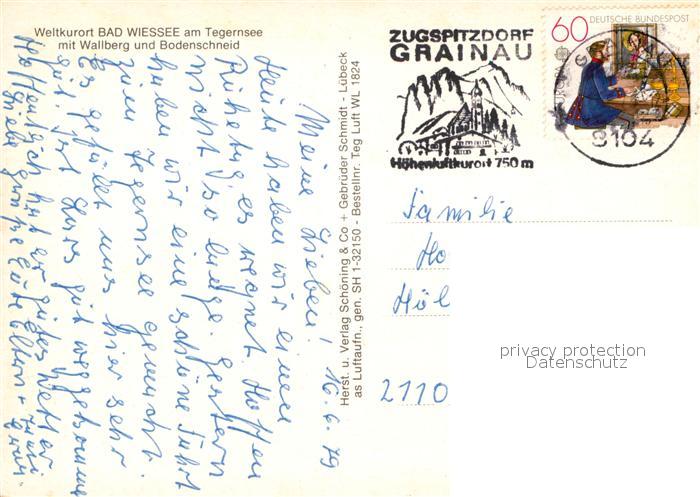 Weltkurort BAD WIESSEE am Tegernsee
mit Wallberg und Bodenschneid
Meine Lieben! 16.6.79
Heute haben wir einen
Ruhetag, es regnet. Hoffen
nicht so lange. Gestern
haben wir eine schöne Fahrt
zum Tegernsee gemacht.
Es gefällt uns hier sehr
gut. Ist Lars gut weggekommen
Hoffentlich hat er gutes Wetter
Liebe Grüße Eure Eltern +
Herst. u. Verlag Schöning & Co + Gebrüder Schmidt - Lübeck
as Luftaufn., gen. SH 1-32150 - Bestellnr. Teg Luft WL 1824
ZUGSPITZDORF
GRAINAU
Höhenluftkurort 750 m
60 DEUTSCHE BUNDESPOST
8104
Familie
Ho
Höl
2110
privacy protection
Datenschutz